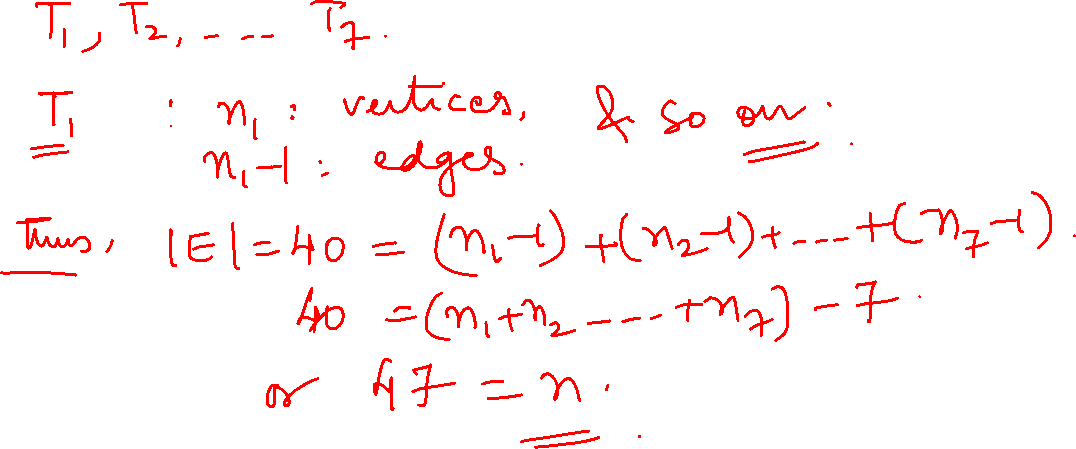 T₁, T₂, ---- T₇.
T₁ : n₁ : vertices, & so on.
n₁-1 : edges.
Thus, |E| = 40 = (n₁-1) + (n₂-1) + ---- + (n₇-1).
40 = (n₁+n₂ ---- +n₇) - 7.
or 47 = n.